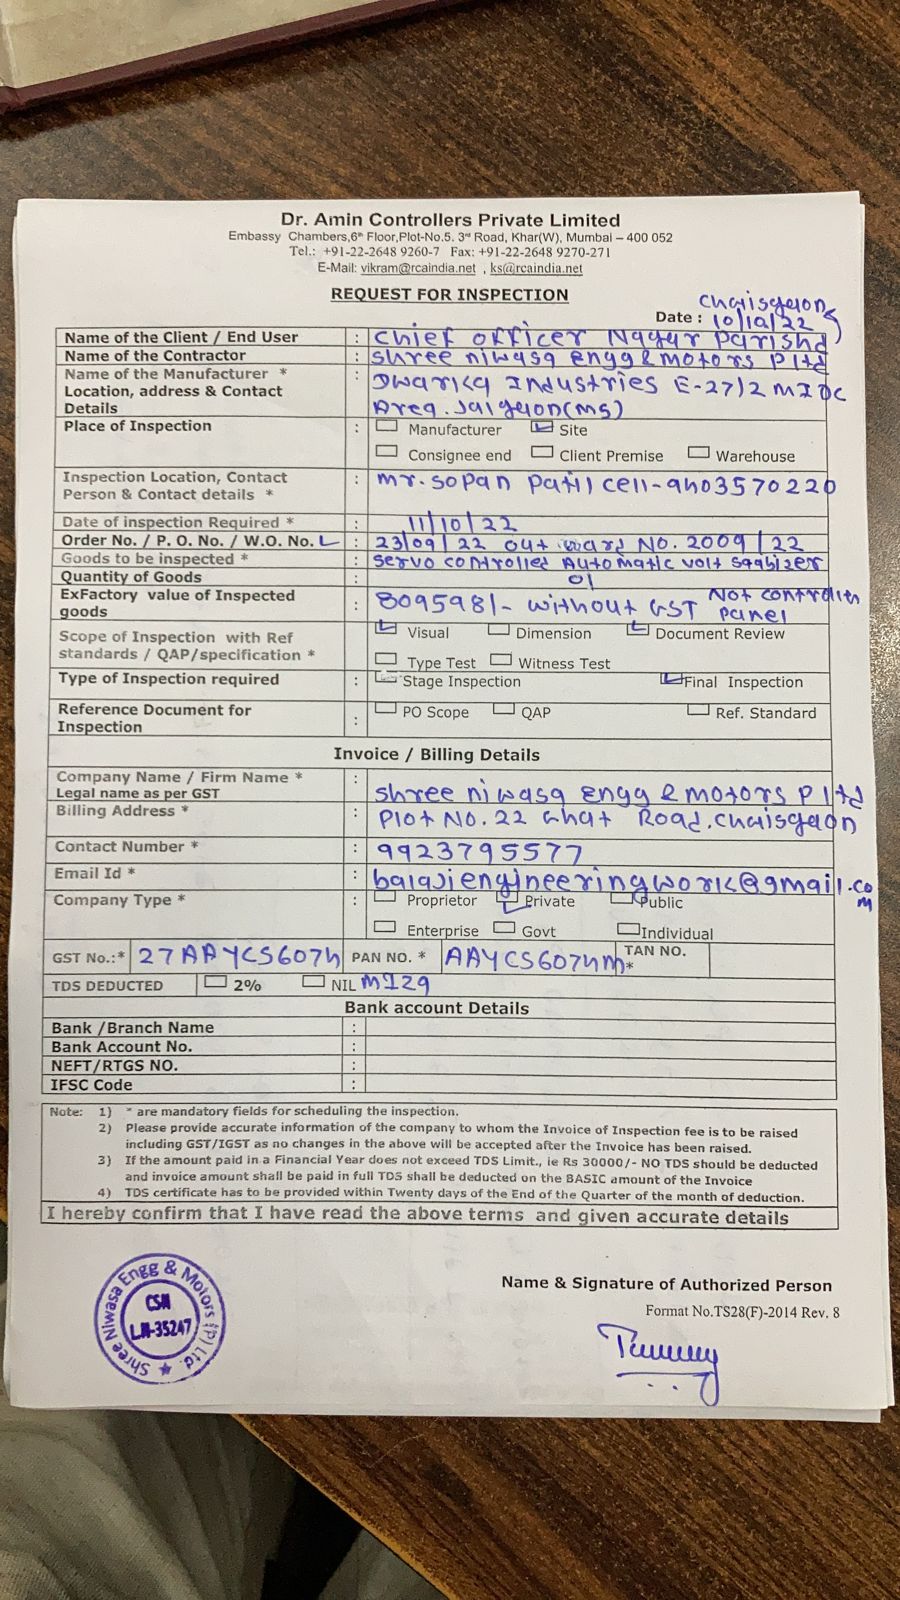 Dr. Amin Controllers Private Limited
Embassy Chambers,6th Floor,Plot-No.5. 3rd Road, Khar(W), Mumbai – 400 052
Tel.: +91-22-2648 9260-7 Fax: +91-22-2648 9270-271
E-Mail: vikram@rcaindia.net , ks@rcaindia.net
REQUEST FOR INSPECTION
Date : 10/10/22
Name of the Client / End User : Chief officer Nagar Parishd
Name of the Contractor : shree niwasa engg & motors P ltd
Name of the Manufacturer * : Dwarka Industries E-27/2 MIDC
Location, address & Contact
Details
Area. Jalgaon(ms)
Place of Inspection : Manufacturer Site
Consignee end Client Premise Warehouse
Inspection Location, Contact : mr. sopan patil cell-9403570220
Person & Contact details *
Date of inspection Required * : 11/10/22
Order No. / P. O. No. / W.O. No. : 23/09/22 outward NO. 2009/22
Goods to be inspected * : servo controlled Automatic volt
Quantity of Goods : 01
ExFactory value of Inspected : 809598/- without GST Not
goods panel
Scope of Inspection with Ref : Visual Dimension Document Review
standards / QAP/specification * Type Test Witness Test
Type of Inspection required : Stage Inspection Final Inspection
Reference Document for : PO Scope QAP Ref. Standard
Inspection
Invoice / Billing Details
Company Name / Firm Name * :
Legal name as per GST shree niwasa engg & motors P ltd
Billing Address * : Plot NO. 22 Ghat Road.
Contact Number * : 9923795577
Email Id * : balajiengineeringwork@gmail.com
Company Type * : Proprietor Private Public
Enterprise Govt Individual
GST No.:* PAN NO. * TAN NO.
*
TDS DEDUCTED 2% NIL
Bank account Details
Bank /Branch Name :
Bank Account No. :
NEFT/RTGS NO. :
IFSC Code :
Note: 1) * are mandatory fields for scheduling the inspection.
2) Please provide accurate information of the company to whom the Invoice of Inspection fee is to be raised
including GST/IGST as no changes in the above will be accepted after the Invoice has been raised.
3) If the amount paid in a Financial Year does not exceed TDS Limit., ie Rs 30000/- NO TDS should be deducted
and invoice amount shall be paid in full TDS shall be deducted on the BASIC amount of the Invoice
4) TDS certificate has to be provided within Twenty days of the End of the Quarter of the month of deduction.
I hereby confirm that I have read the above terms and given accurate details
Name & Signature of Authorized Person
Format No.TS28(F)-2014 Rev. 8
Shree Niwasa Engg & Motors (P) Ltd.
CSN
-35247